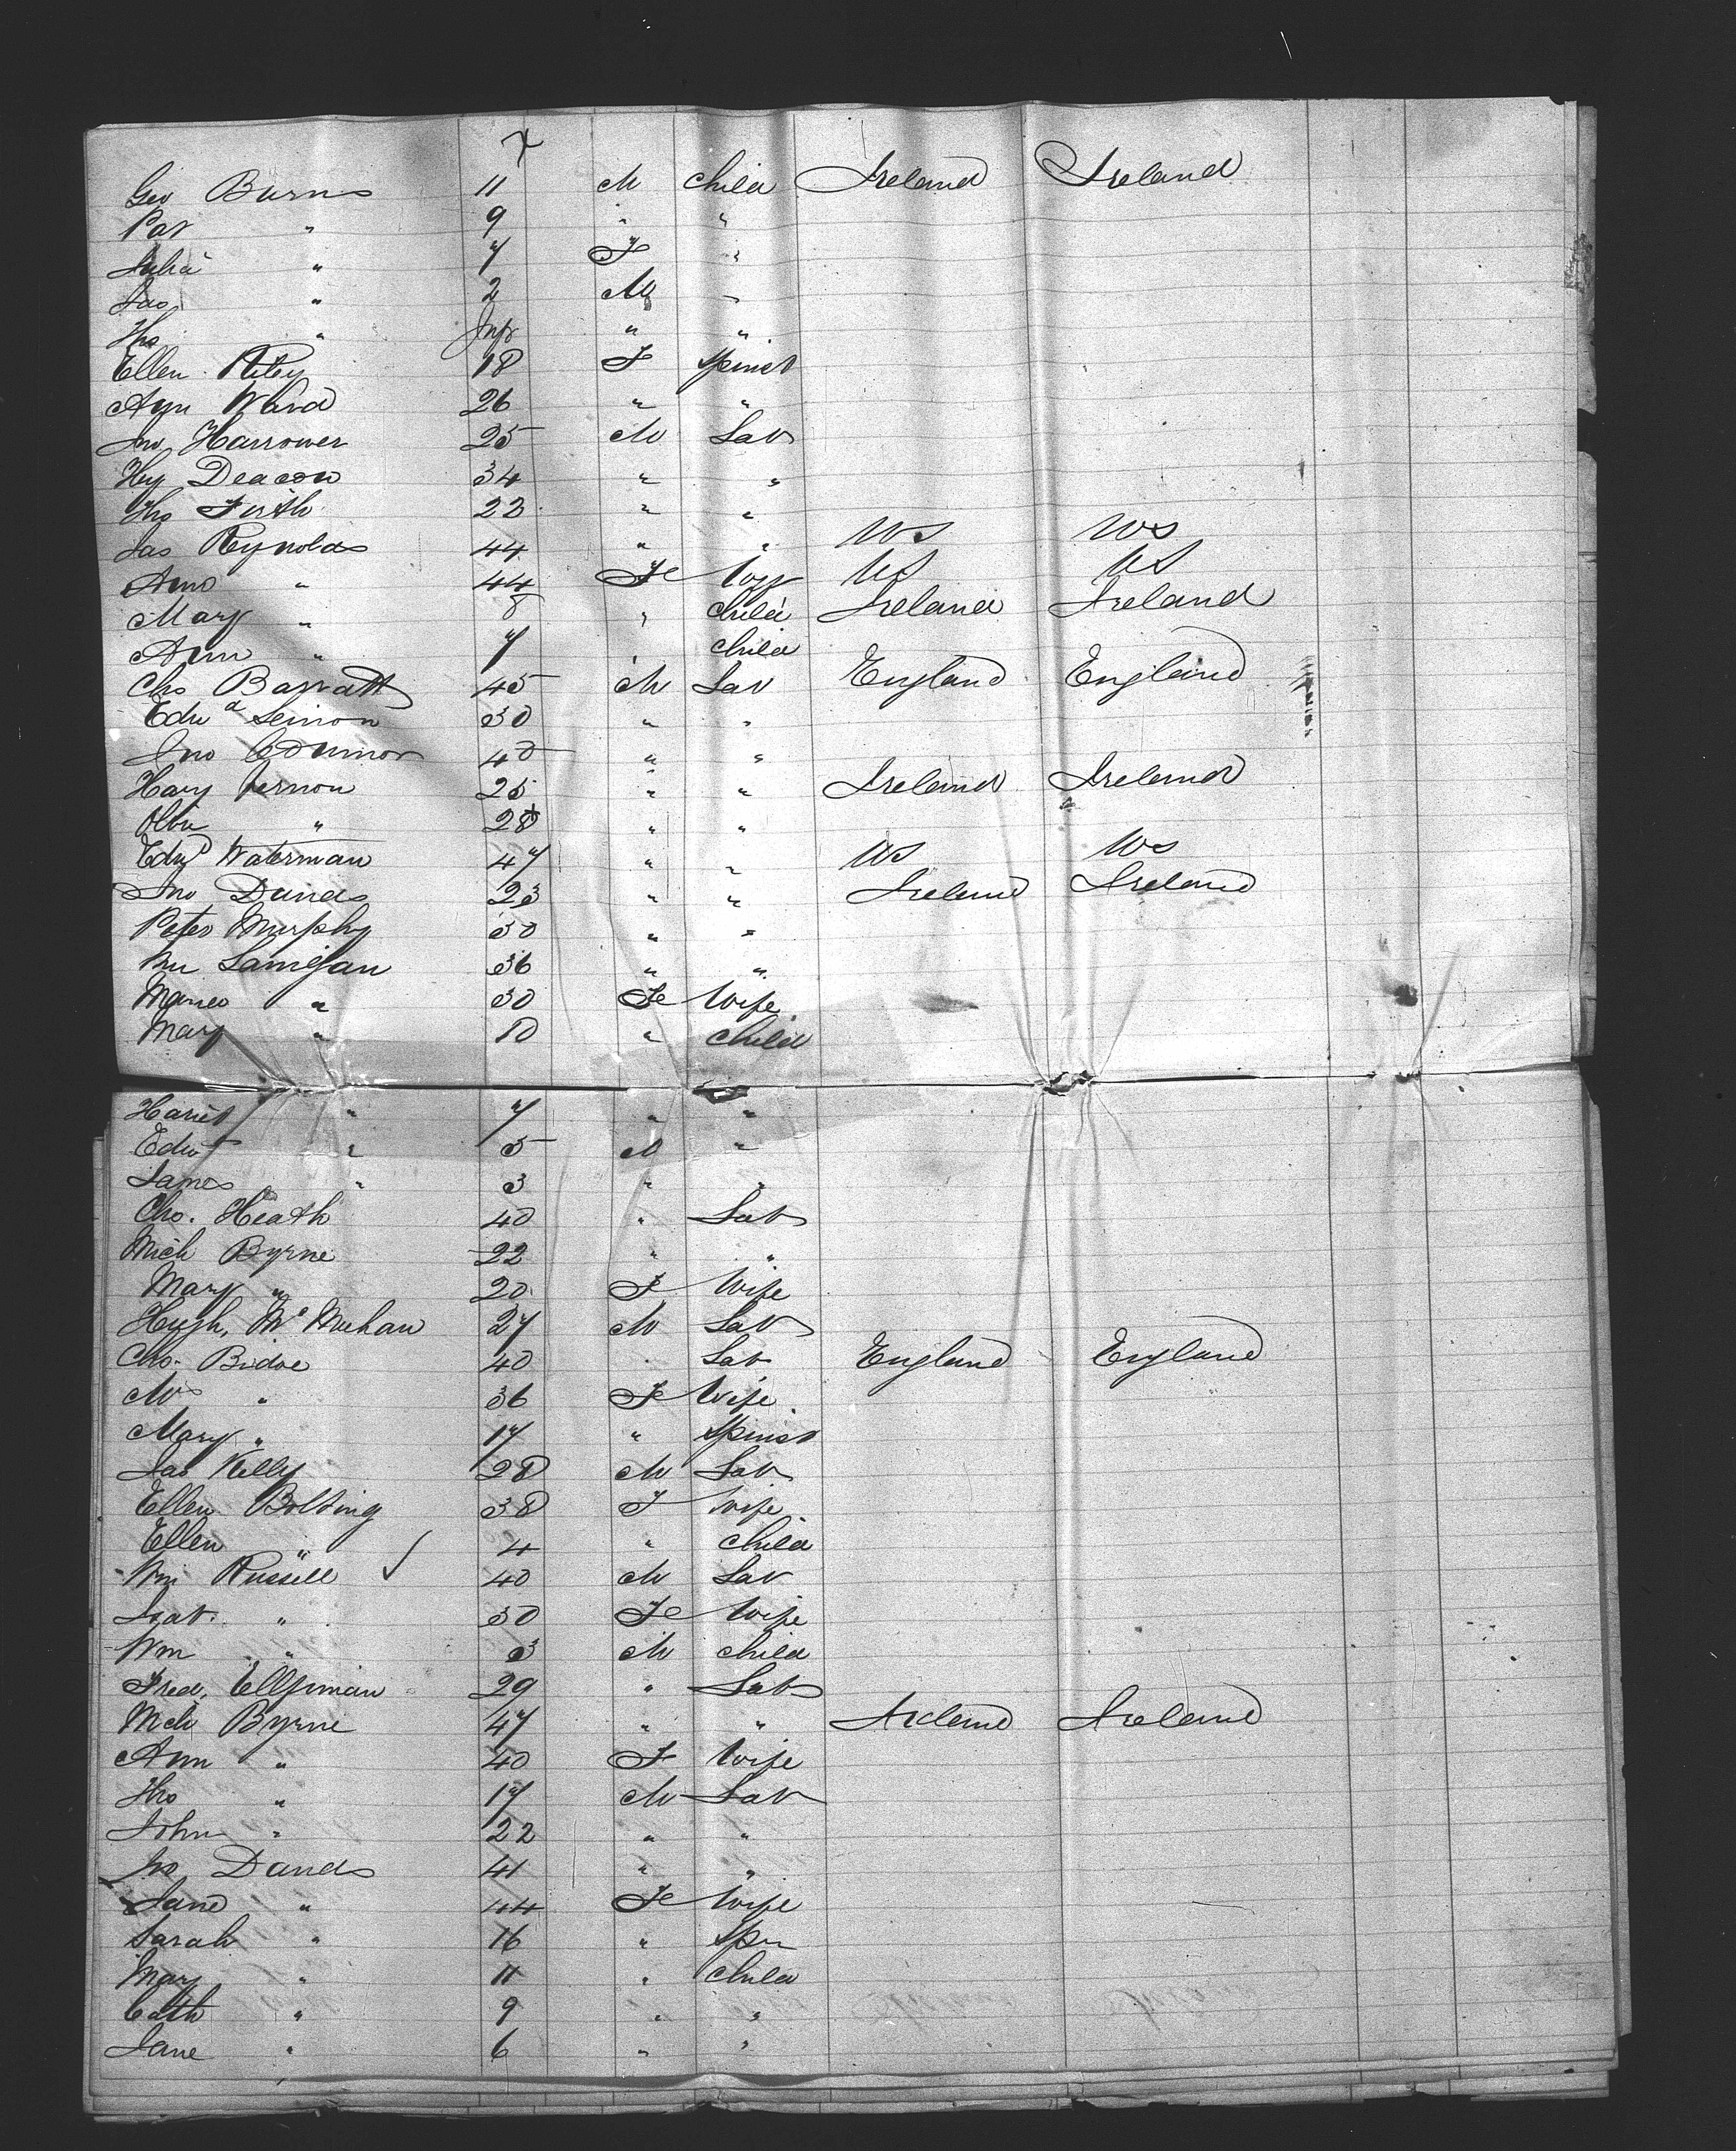 Geo Burns 11 M Child Ireland Ireland
Pat " 9 " "
Julia " 7 F "
Jas " 2 M "
Thos " Inft " "
Ellen Riley 18 F Spinst
Ann Ward 26 " "
Jno Harrower 25 M Lab
Hy Deacon 34 " "
Thos Firth 22 " "
Jas Reynolds 44 " " US US
Ann " 44 Fe Wife US US
Mary " 8 " Child Ireland Ireland
Ann " 7 " Child
Chs Barratt 45 M Lab England England
Edwd 30 " "
Jno 40 " "
Harry Vernon 25 " " Ireland Ireland
" 28 " "
Edwd Waterman 47 " " US US
Jno Davids 23 " " Ireland Ireland
Peter Murphy 30 " "
Wm Lanigan 36 " "
" 30 Fe Wife
Mary " 10 " Child
Hariet " 7 " "
Edwd " 5 M "
James " 3 " "
Chs. Heath 40 " Lab
Mich Byrne 22 " "
Mary " 20 F Wife
Hugh Mc Mehan 27 M Lab
Chs. 40 " Lab England England
Mrs " 36 Fe Wife
Mary " 17 " Spinst
Jas Kelly 28 M Lab
Ellen Bolting 38 F Wife
Ellen " 4 " Child
Wm Russell ✓ 40 M Lab
" 30 Fe Wife
Wm " 3 M Child
Fred. 29 " Lab
Mich Byrne 47 " " Ireland Ireland
Ann " 40 F Wife
Thos " 17 M Lab
John " 22 " "
Davids 41 " "
Jane " 44 Fe Wife
Sarah " 16 " Spin
Mary " 11 " Child
Cath " 9 " "
Jane " 6 " "